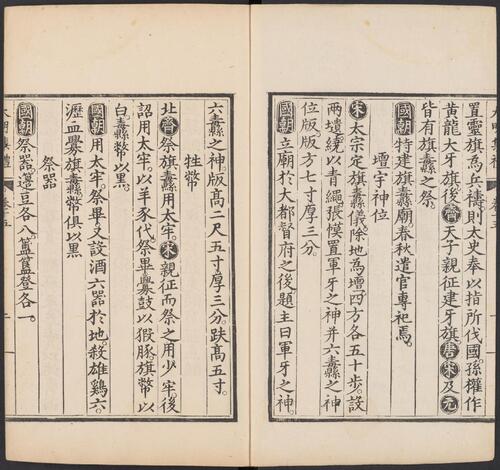 置靈旗爲兵禱則太史奉以指所伐國孫權作
黃龍大牙旗後齊天子親征建牙旗唐宋及元
皆有旗纛之祭
國朝特建旗纛廟春秋遣官專祀焉
壇宇神位
宋太宗定旗纛儀除地爲壇四方各五十步設
兩壝繞以青繩張幙置軍牙之神并六纛之神
位版版方七寸厚三分
國朝立廟於大都督府之後題主曰軍牙之神
六纛之神版高二尺五寸厚三分趺高五寸
牲幣
北齊祭旗纛用太牢宋親征而祭之用少牢後
詔用太牢以羊豕代祭畢釁鼓以豭豚旗幣以
白纛幣以黑
國朝用太牢祭畢又設酒六器於地殺雄鷄六
瀝血釁旗纛幣俱以黑
祭器
國朝祭器籩豆各八簠簋登各一